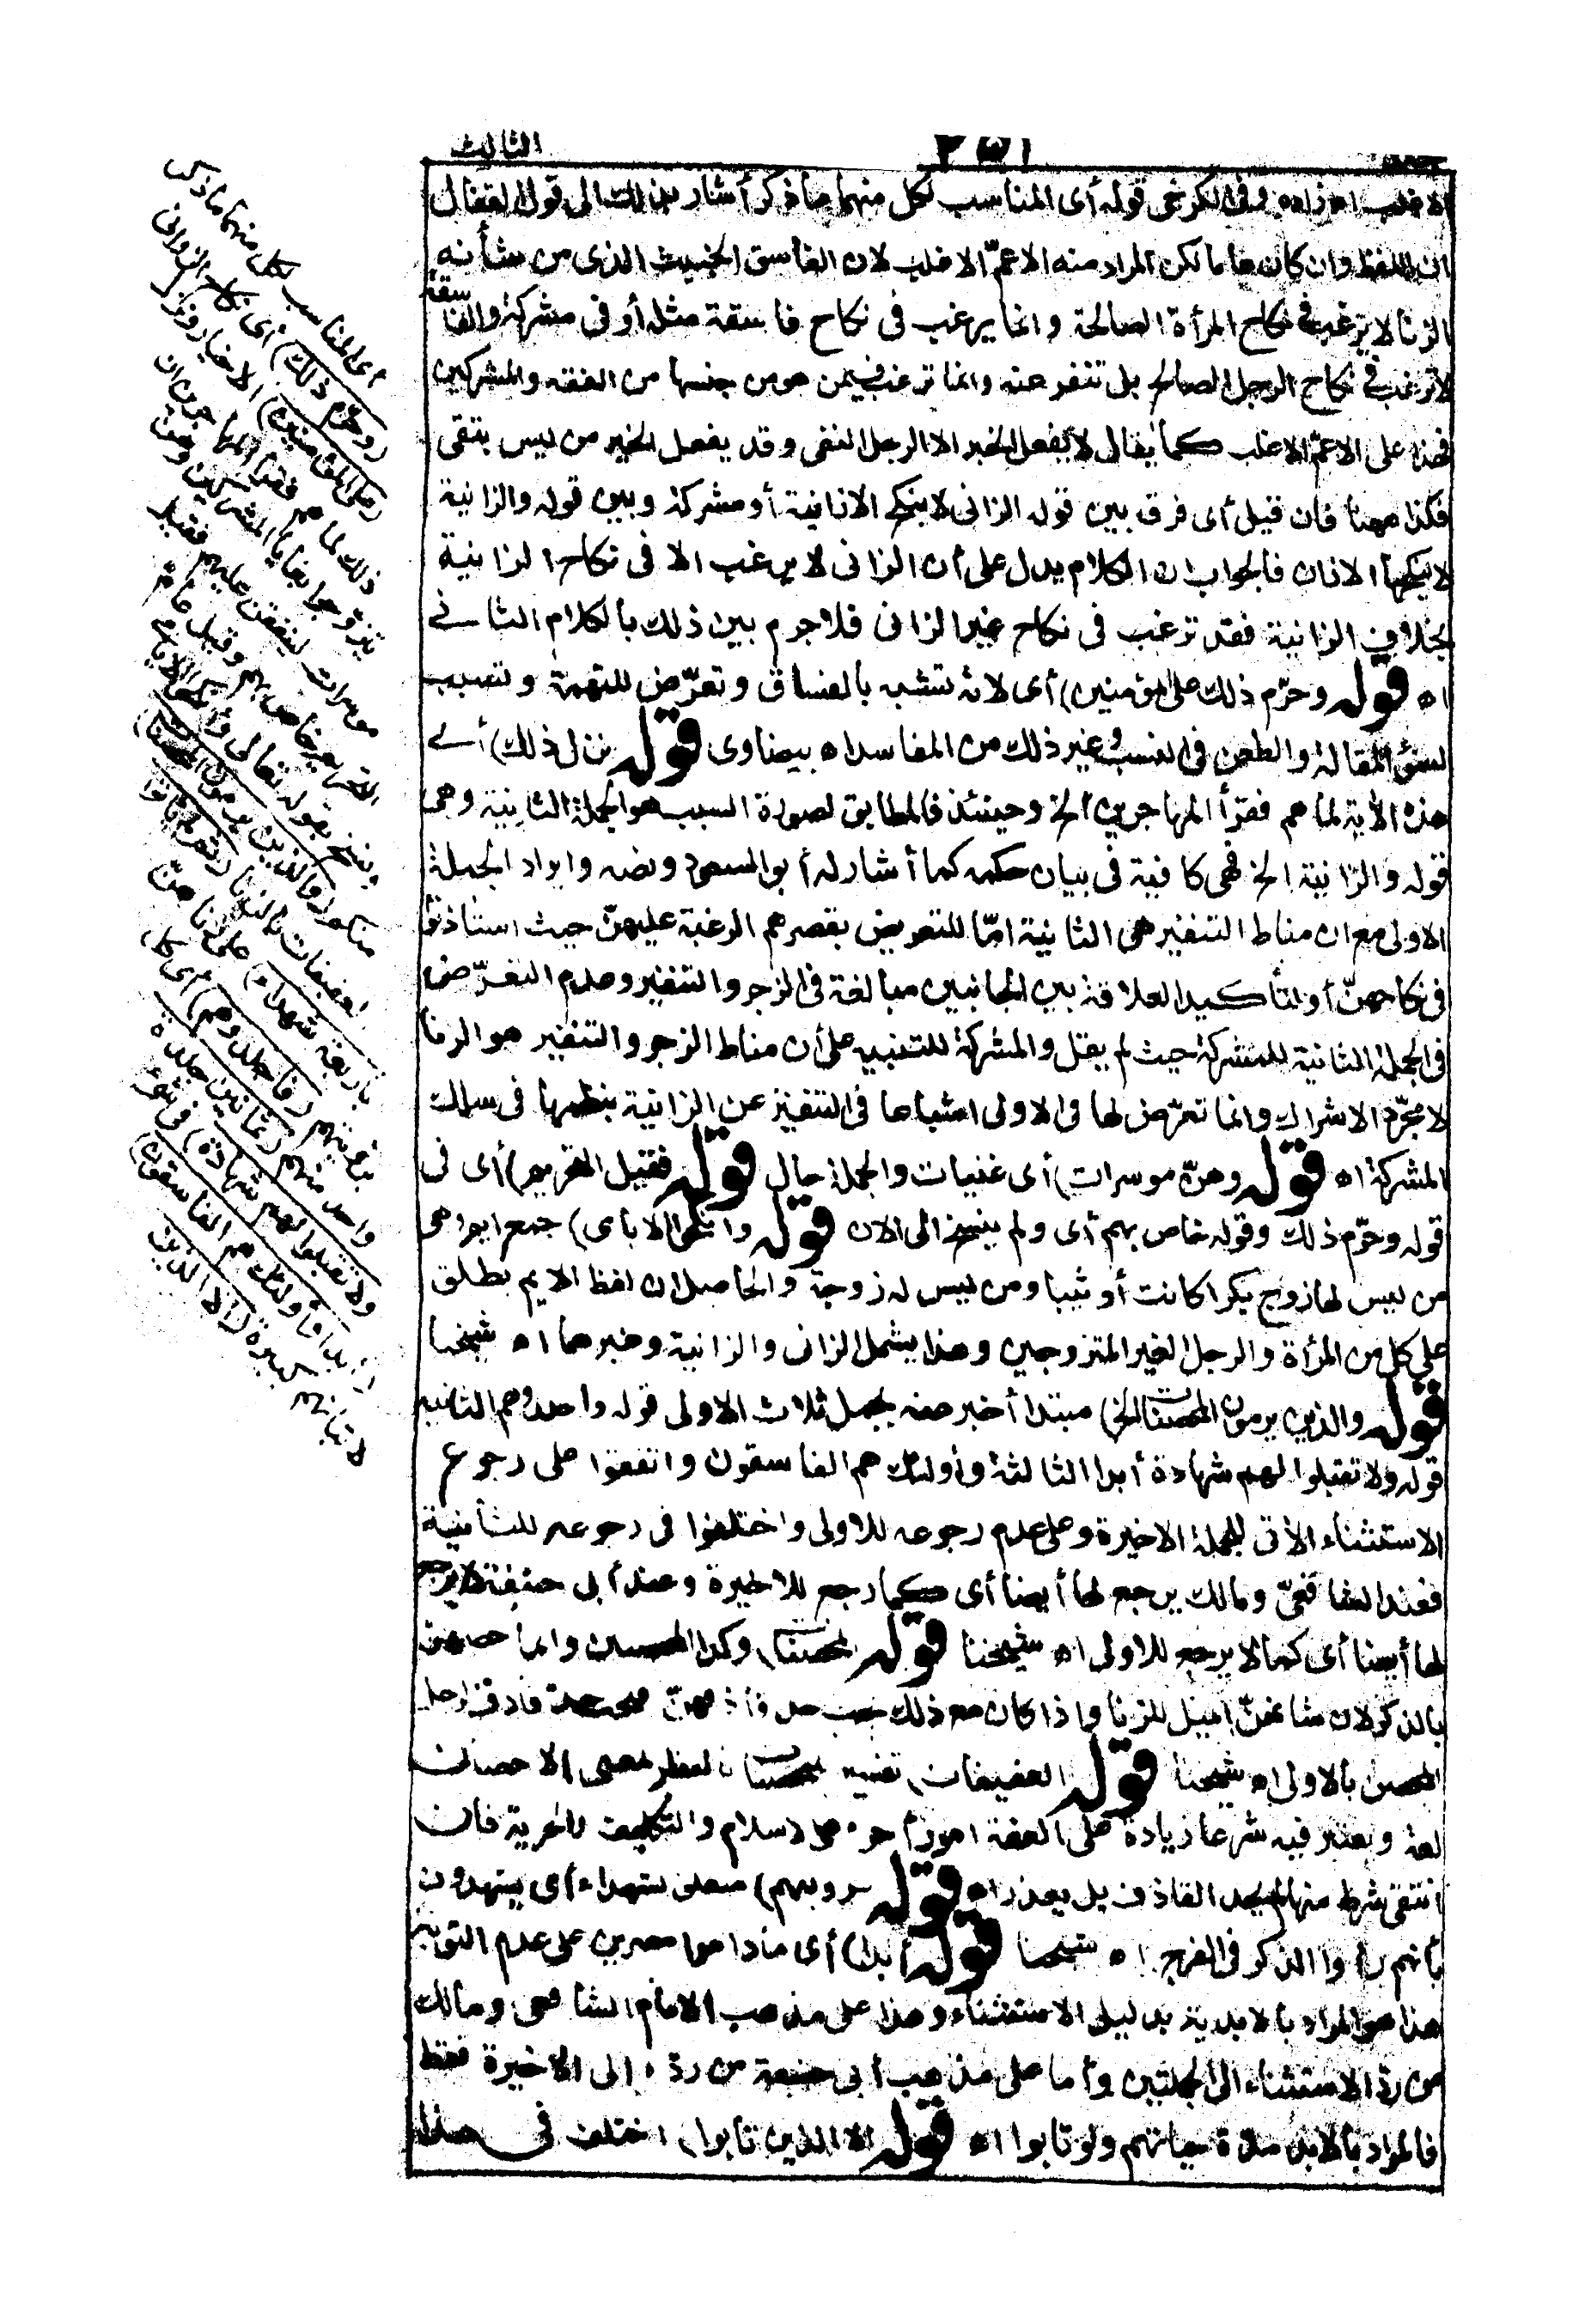 الثالث
٢٥١
الاغلب اه زاده وفى الكرخى قوله أى المناسب لكل منهما ما ذكر أشار بذلك الى قول القفال
ان اللفظ وان كان عاما لكن المراد منه الاعمّ الاغلب لان الفاسق الخبيث الذى من شأنه
الزنا لا يرغب فى نكاح المرأة الصالحة وانما يرغب فى نكاح فاسقة مثله أو فى مشركة والفاسقة
لا ترغب فى نكاح الرجل الصالح بل تنفر عنه وانما ترغب فيمن هو من جنسها من الفسقة والمشركين
فهذا على الاعمّ الاغلب كما يقال لا يفعل الخير الا الرجل التقى وقد يفعل الخير من ليس بتقى
فكذا ههنا فان قيل أى فرق بين قوله الزانى لا ينكح الا زانية أو مشركة وبين قوله والزانية
لا ينكحها الا زان فالجواب ان الكلام يدل على أن الزانى لا يرغب الا فى نكاح الزانية
بخلاف الزانية فقد ترغب فى نكاح غير الزانى فلا جرم بين ذلك بالكلام الثانى
اه قوله وحرّم ذلك على المؤمنين) أى لانه تشبه بالفساق وتعرّض للتهمة وتسبب
لسوء المقالة والطعن فى النسب وغير ذلك من المفاسد اه بيضاوى قوله نزل ذلك) أى
هذه الآية لما هم فقراء المهاجرين الخ وحينئذ فالمطابق لصورة السبب هو الجملة الثانية وهى
قوله والزانية الخ فهى كافية فى بيان حكمه كما أشار له أبو السعود ونصه وايراد الجملة
الاولى مع ان مناط التنفير هى الثانية امّا للتعريض بقصرهم الرغبة عليهنّ حيث استأذنوا
فى نكاحهنّ أو لتأكيد العلاقة بين الجانبين مبالغة فى الزجر والتنفير وعدم التعرّض
فى الجملة الثانية للمشركة حيث لم يقل والمشركة للتنبيه على أن مناط الزجر والتنفير هو الزنا
لا مجرّد الاشراك وانما تعرّض لها فى الاولى اشباعا فى التنفير عن الزانية بنظمها فى سلك
المشركة اه قوله وهنّ موسرات) أى غنيات والجملة حال قوله فقيل التحريم) أى فى
قوله وحرّم ذلك وقوله خاص بهم أى ولم ينسخ الى الان قوله وانكحوا الايامى) جمع ايم وهى
من ليس لها زوج بكرا كانت أو ثيبا ومن ليس له زوجة والحاصل ان لفظ الايم يطلق
على كل من المرأة والرجل الغير المتزوجين وهذا يشمل الزانى والزانية وغيرهما اه شيخنا
قوله والذين يرمون المحصنات الخ) مبتدا أخبر عنه بجمل ثلاث الاولى قوله فاجلدوهم الثانية
قوله ولا تقبلوا لهم شهادة أبدا الثالثة وأولئك هم الفاسقون واتفقوا على رجوع
الاستثناء الآتى للجملة الاخيرة وعلى عدم رجوعه للاولى واختلفوا فى رجوعه للثانية
فعند الشافعىّ ومالك يرجع لها أيضا أى كما رجع للاخيرة وعند أبى حنيفة لا يرجع
لها أيضا أى كما لا يرجع للاولى اه شيخنا قوله المحصنات) وكذا المحصنين وانما خصهن
بالذكر لان شأنهنّ أميل للزنا واذا كان مع ذلك يجب حد قاذفهنّ فحد قاذف الرجل
المحصن بالاولى اه شيخنا قوله العفيفات) تفسير للمحصنات بالنظر لمعنى الاحصان
لغة ويعتبر فيه شرعا زيادة على العفة امور أخر هى الاسلام والتكليف والحرية فان
انتفى شرط منها لم يحد القاذف بل يعزر اه قوله برؤيتهم) متعلق بشهداء أى يشهدون
بأنهم رأوا الذكر فى الفرج اه شيخنا قوله أبدا) أى ما داموا مصرين على عدم التوبة
هذا هو المراد بالابدية بدليل الاستثناء وهذا على مذهب الامام الشافعى ومالك
من ردّ الاستثناء الى الجملتين وأما على مذهب أبى حنيفة من ردّه الى الاخيرة فقط
فالمراد بالابد مدّة حياتهم ولو تابوا اه قوله الا الذين تابوا) اختلف فى هذا
أى المناسب لكل منهما ما ذكر
(وحرّم ذلك) أى نكاح الزوانى
(على المؤمنين) الاخيار ونزل
ذلك لما هم فقراء المهاجرين ان
يتزوّجوا بغايا المشركين وهنّ
موسرات لينفقن عليهم فقيل
التحريم خاص بهم وقيل عامّ
ونسخ بقوله تعالى وأنكحوا الايامى
منكم (والذين يرمون المحصنات)
العفيفات بالزنا (ثم لم يأتوا
بأربعة شهداء) على زناهنّ
برؤيتهم (فاجلدوهم) أى كل
واحد منهم (ثمانين جلدة
ولا تقبلوا لهم شهادة) فى شئ
(أبدا وأولئك هم الفاسقون)
لاتيانهم كبيرة (الا الذين